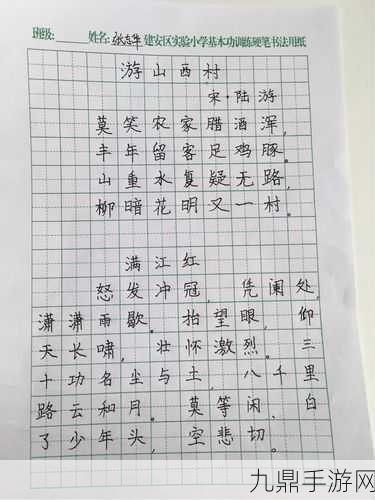 班级: 姓名: 建安区实验小学基本功训练硬笔书法用纸
游山西村
宋·陆游
莫笑农家腊酒浑,
丰年留客足鸡豚。
山重水复疑无路,
柳暗花明又一村。
满江红
怒发冲冠,凭阑处,
潇潇雨歇。抬望眼,仰
天长啸,壮怀激烈。三
十功名尘与土,八千里
路云和月。莫等闲,白
了少年头,空悲切。
九鼎手游网